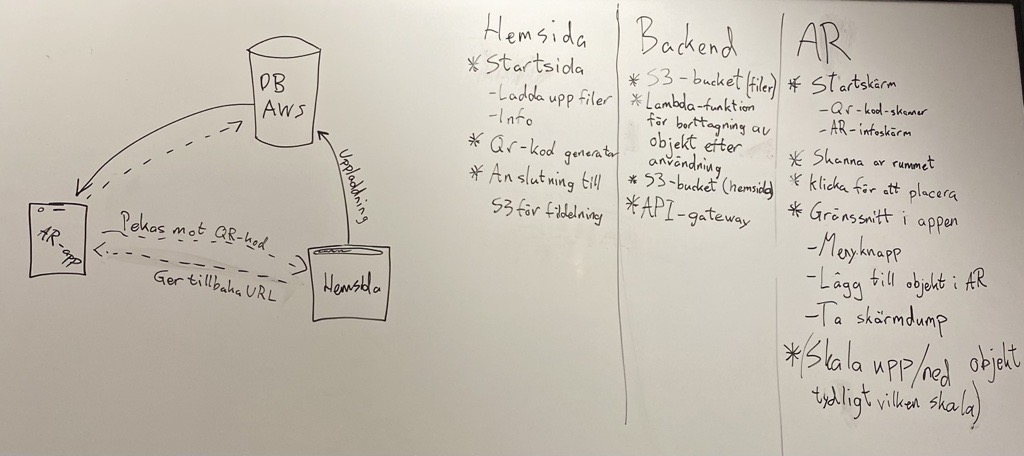 DB
AWS
Uppladdning
AR-app
Pekas mot QR-kod
Ger tillbaka URL
Hemsida
Hemsida
* Startsida
-Ladda upp filer
-Info
* Qr-kod generator
* Anslutning till
S3 för fildelning
Backend
* S3-bucket (filer)
* Lambda-funktion
för borttagning av
objekt efter
användning
* S3-bucket (hemsida)
* API-gateway
AR
* Startskärm
-Qr-kod-skanner
-AR-infoskärm
* Skanna av rummet
* Klicka för att placera
* Gränssnitt i appen
-Menyknapp
-Lägg till objekt i AR
-Ta skärmdump
* (Skala upp/ned objekt
tydligt vilken skala)